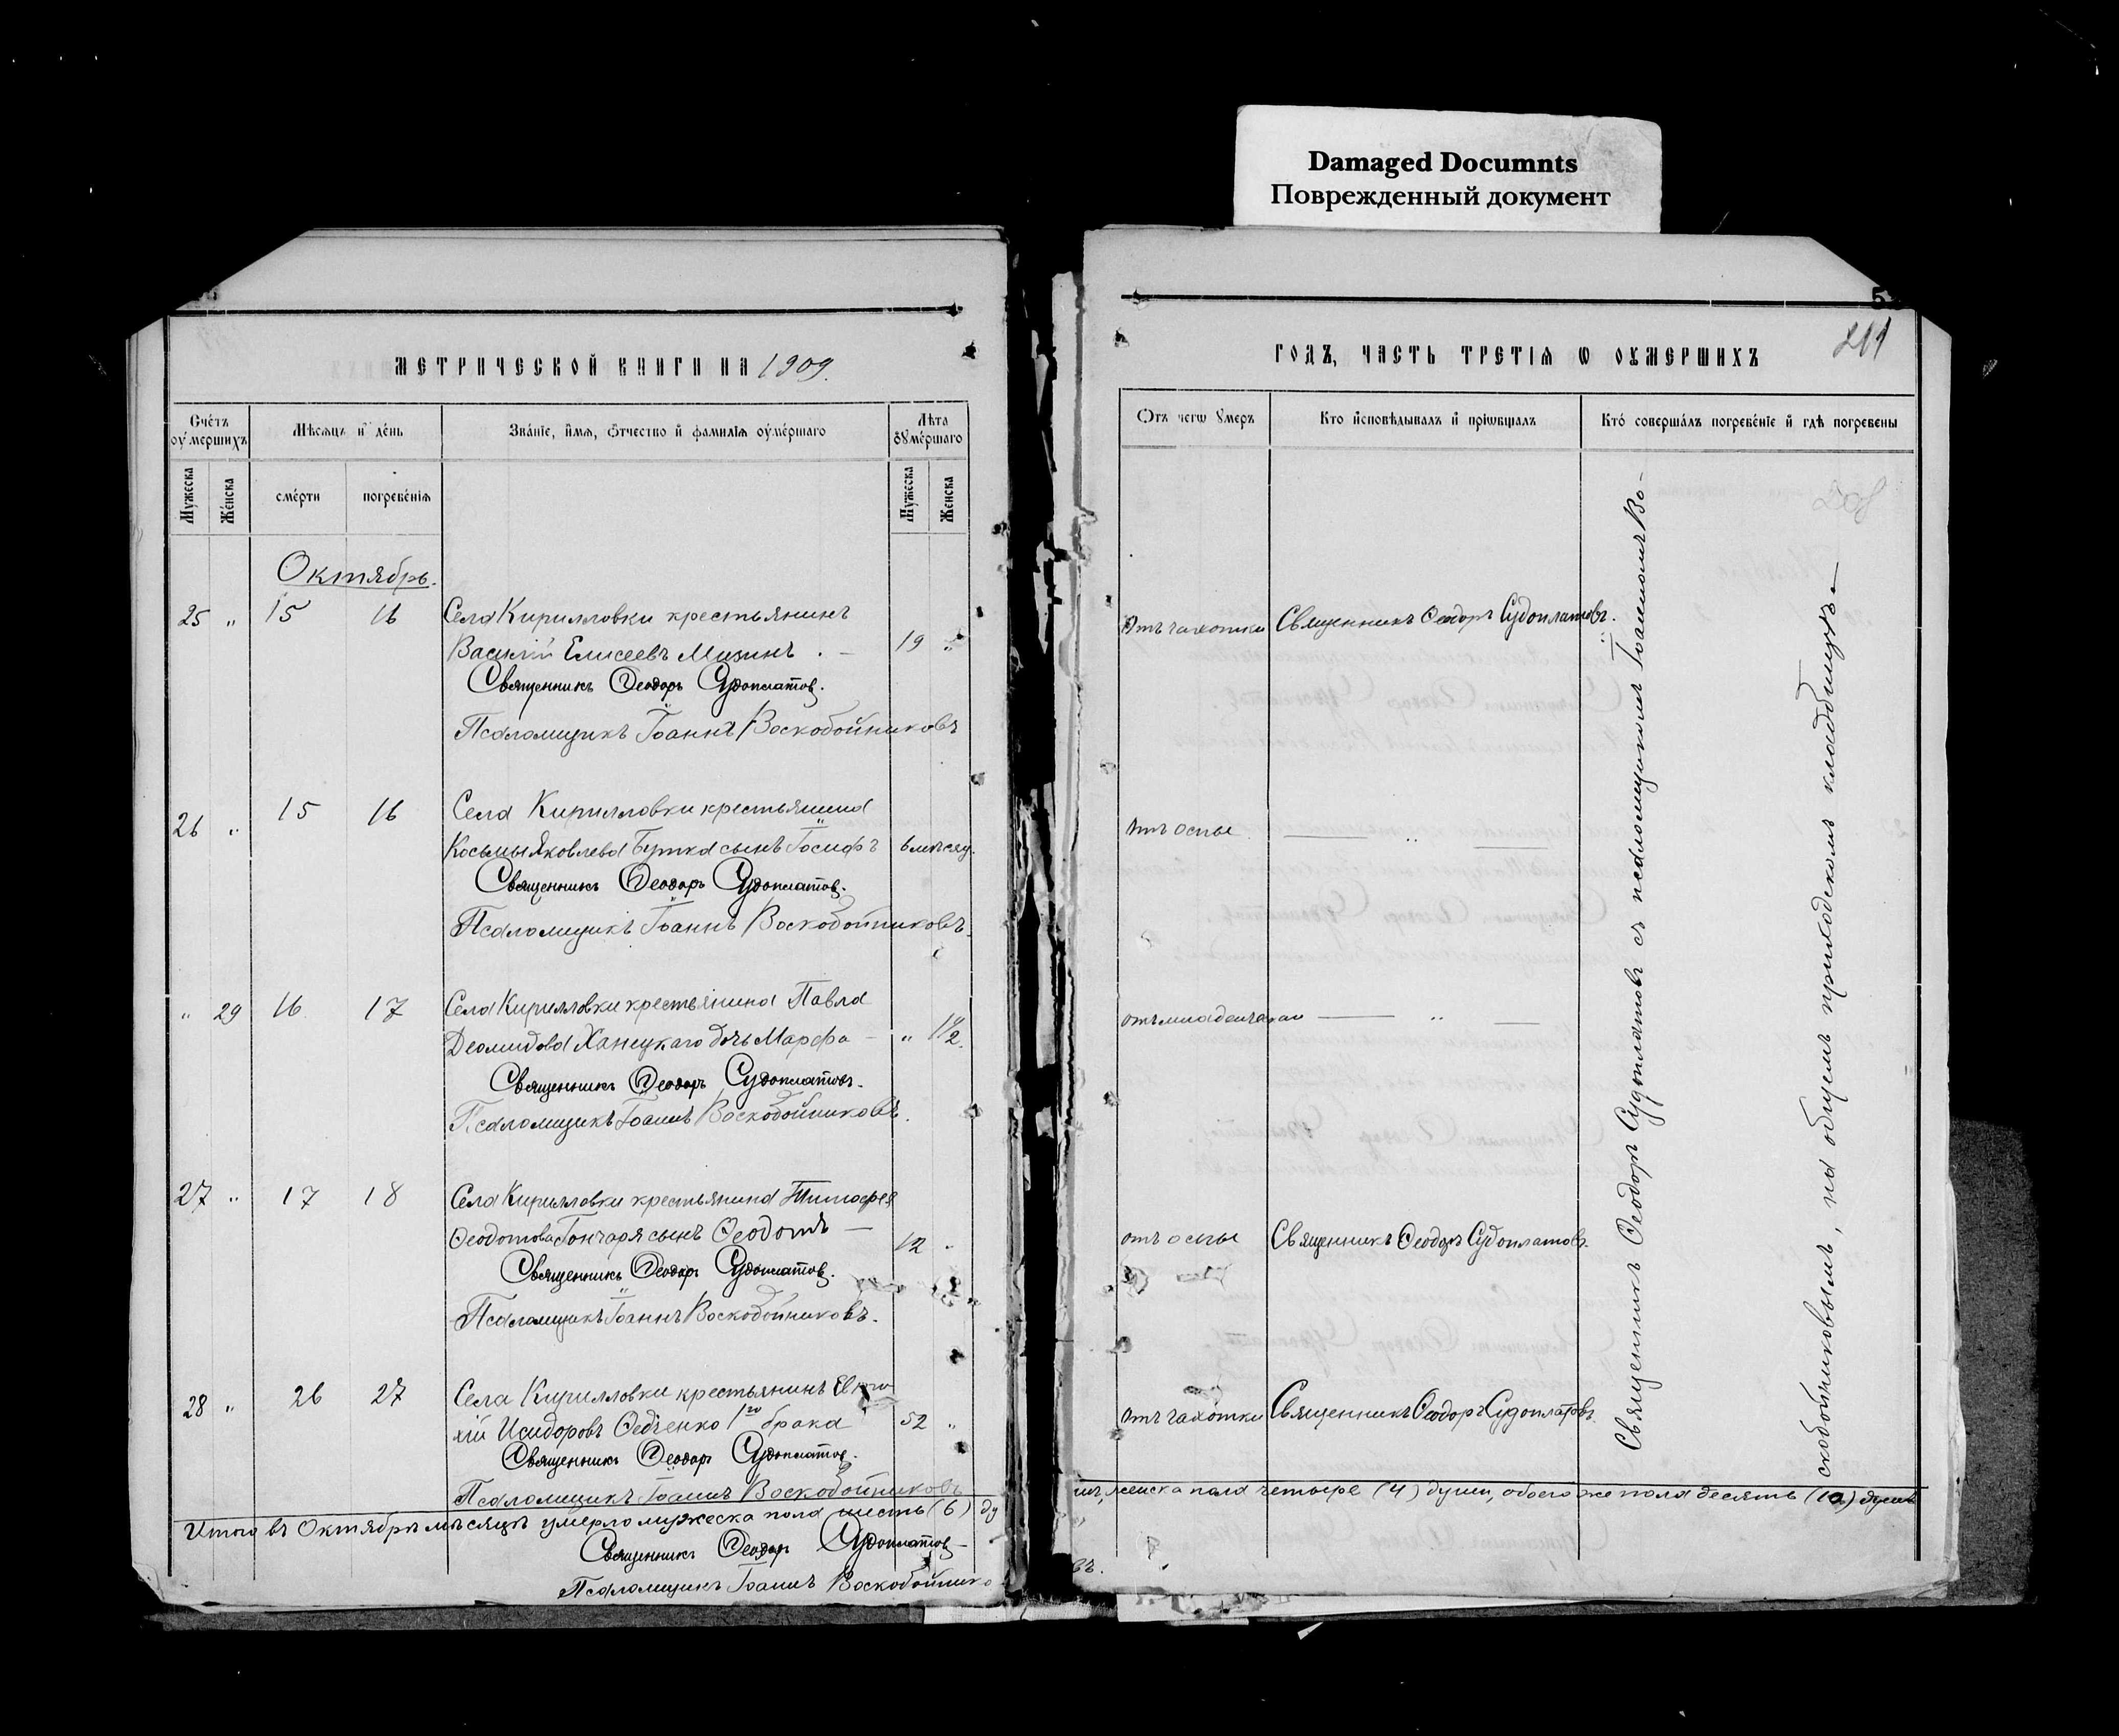 Damaged Documnts
Поврежденный документ
МЕТРИЧЕСКОЙ КНИГИ НА 1909.
Счетъ оумершихъ
Мѣсяцъ и день
Званіе, имя, Ѿчество и фамилія оумершаго
Лѣта оумершаго
Мужеска
Женска
смерти
погребенія
Мужеска
Женска
Октябрь.
25 " 15 16 Села Кирилловки крестьянинъ
Василій Елисеевъ Мизинъ . — 19 "
Священникъ Ѳеодоръ Судоплатов.
Псаломщикъ Іоаннъ Воскобойниковъ
26 " 15 16 Села Кирилловки крестьянина
Косьмы Яковлева Бутка сынъ Іосифъ 6 мѣсяц.
Священникъ Ѳеодоръ Судоплатов.
Псаломщикъ Іоаннъ Воскобойниковъ.
" 29 16 17 Села Кирилловки крестьянина Павла
Деомидова Ханецкаго дочь Марфа — " 1 1/2.
Священникъ Ѳеодоръ Судоплатовъ.
Псаломщикъ Іоаннъ Воскобойниковъ.
27 " 17 18 Села Кирилловки крестьянина Тимофея
Ѳеодотова Гончаря сынъ Ѳеодотъ — 12 "
Священникъ Ѳеодоръ Судоплатов.
Псаломщикъ Іоаннъ Воскобойниковъ.
28 " 26 27 Села Кирилловки крестьянинъ
Исидоровъ Федченко 1го брака 52 "
Священникъ Ѳеодоръ Судоплатов.
Псаломщикъ Іоаннъ Воскобойниковъ
Итого въ Октябрѣ мѣсяцѣ умерло мужеска пола шесть (6) ду
Священникъ Ѳеодоръ Судоплатов
Псаломщикъ Іоаннъ Воскобойнико
5
211
ГОДЪ, ЧАСТЬ ТРЕТІЯ Ѡ ОУМЕРШИХЪ
Ѿтъ чегѡ умеръ
Кто исповѣдывалъ и пріѡбщалъ
Кто совершалъ погребеніе и гдѣ погребены
208
Отъ чахотки Священникъ Ѳеодоръ Судоплатовъ.
Отъ оспы — " —
отъ младенческой — " —
отъ оспы Священникъ Ѳеодоръ Судоплатовъ.
Отъ чахотки Священникъ Ѳеодоръ Судоплатовъ.
Священникъ Ѳеодоръ Судоплатовъ съ псаломщикомъ Іоанномъ Во-
скобойниковымъ, на общемъ приходскомъ кладбищѣ. —
шъ, женска пола четыре (4) души, обоего же пола десять (10) душъ
въ.